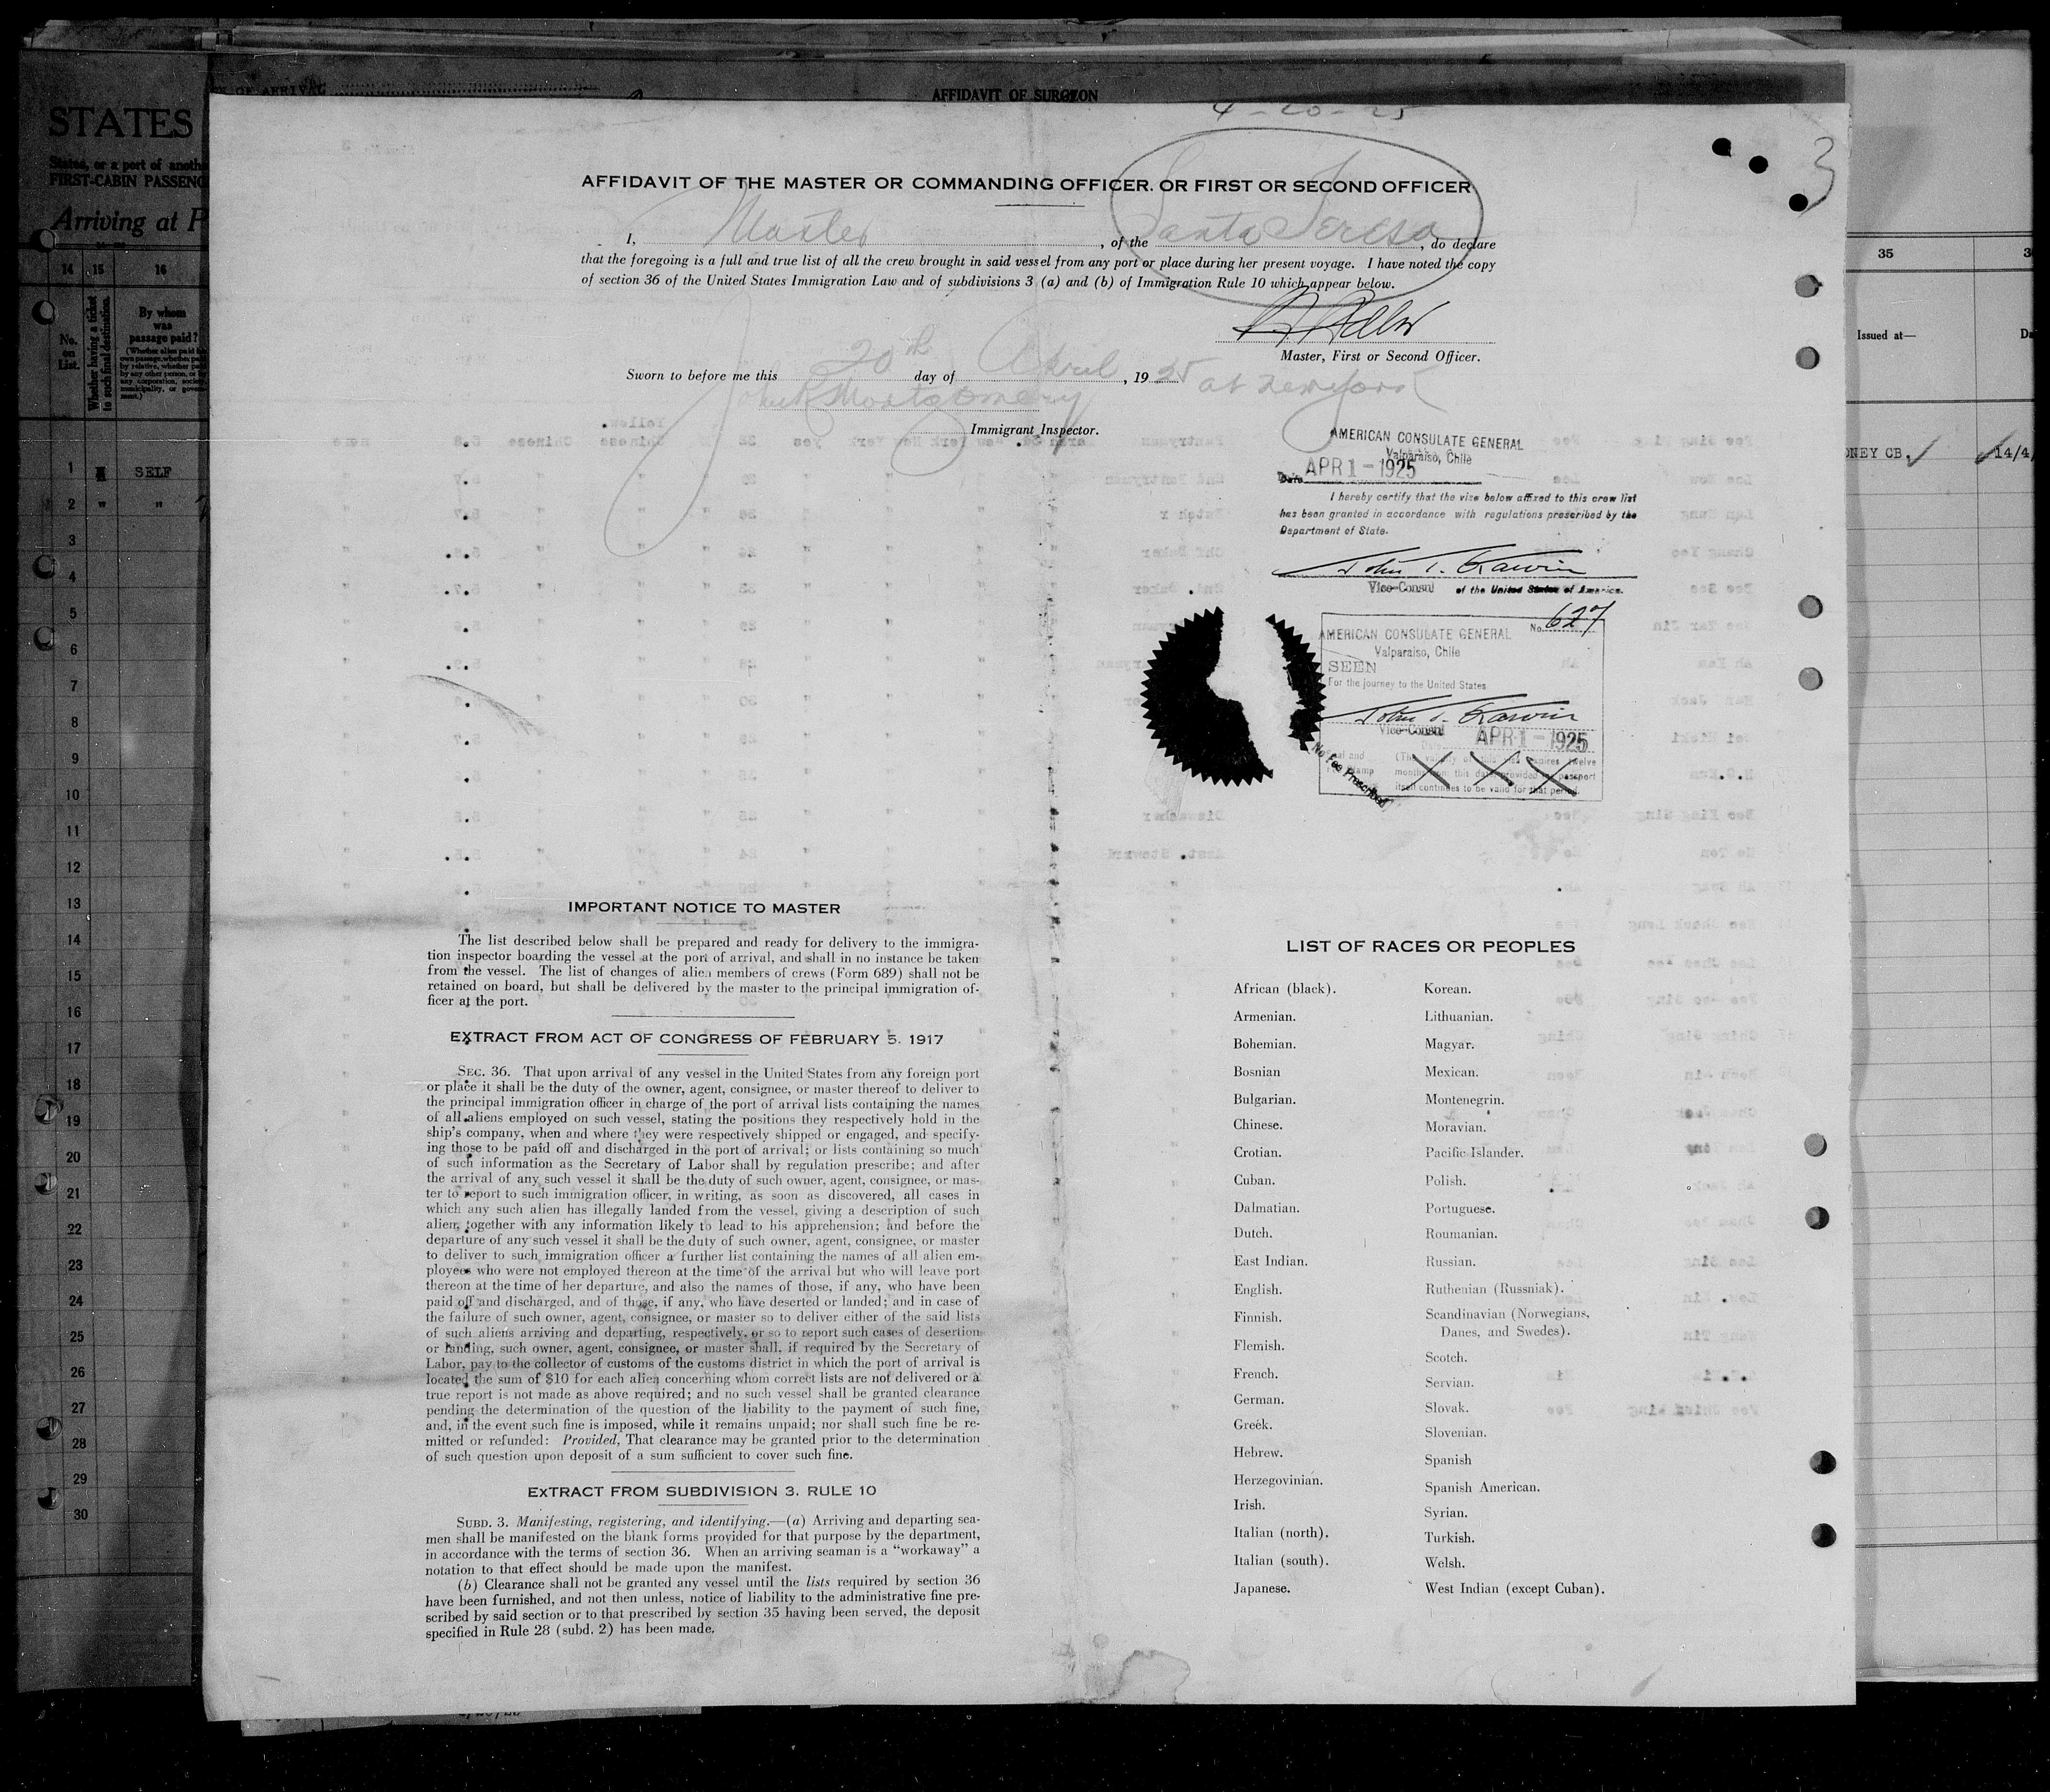 AFFIDAVIT OF SURGEON
STATES
States, or a port of anoth
FIRST-CABIN PASSENG
Arriving at P
14 15 16
No. on List.
Whether having a ticket to such final destination.
By whom was passage paid?
1 SELF
2 " "
3
4
5
6
7
8
9
10
11
12
13
14
15
16
17
18
19
20
21
22
23
24
25
26
27
28
29
30
4-20-25
3
AFFIDAVIT OF THE MASTER OR COMMANDING OFFICER, OR FIRST OR SECOND OFFICER
I, Master, of the Santa Teresa, do declare
that the foregoing is a full and true list of all the crew brought in said vessel from any port or place during her present voyage. I have noted the copy
of section 36 of the United States Immigration Law and of subdivisions 3 (a) and (b) of Immigration Rule 10 which appear below.
Master, First or Second Officer.
Sworn to before me this 20th day of April, 1925 at New York
Montgomery
Immigrant Inspector.
AMERICAN CONSULATE GENERAL
Valparaiso, Chile
Date APR 1 - 1925
I hereby certify that the vise below affixed to this crew list
has been granted in accordance with regulations prescribed by the
Department of State.
Vice-Consul of the United States of America.
No. 627
AMERICAN CONSULATE GENERAL
Valparaiso, Chile
SEEN
For the journey to the United States
Vice-Consul APR 1 - 1925
(The validity of this visa expires twelve
months from this date provided the passport
itself continues to be valid for that period.
No Fee Prescribed
IMPORTANT NOTICE TO MASTER
The list described below shall be prepared and ready for delivery to the immigra-
tion inspector boarding the vessel at the port of arrival, and shall in no instance be taken
from the vessel. The list of changes of alien members of crews (Form 689) shall not be
retained on board, but shall be delivered by the master to the principal immigration of-
ficer at the port.
EXTRACT FROM ACT OF CONGRESS OF FEBRUARY 5, 1917
SEC. 36. That upon arrival of any vessel in the United States from any foreign port
or place it shall be the duty of the owner, agent, consignee, or master thereof to deliver to
the principal immigration officer in charge of the port of arrival lists containing the names
of all aliens employed on such vessel, stating the positions they respectively hold in the
ship's company, when and where they were respectively shipped or engaged, and specify-
ing those to be paid off and discharged in the port of arrival; or lists containing so much
of such information as the Secretary of Labor shall by regulation prescribe; and after
the arrival of any such vessel it shall be the duty of such owner, agent, consignee, or mas-
ter to report to such immigration officer, in writing, as soon as discovered, all cases in
which any such alien has illegally landed from the vessel, giving a description of such
alien, together with any information likely to lead to his apprehension; and before the
departure of any such vessel it shall be the duty of such owner, agent, consignee, or master
to deliver to such immigration officer a further list containing the names of all alien em-
ployees who were not employed thereon at the time of the arrival but who will leave port
thereon at the time of her departure, and also the names of those, if any, who have been
paid off and discharged, and of those, if any, who have deserted or landed; and in case of
the failure of such owner, agent, consignee, or master so to deliver either of the said lists
of such aliens arriving and departing, respectively, or so to report such cases of desertion
or landing, such owner, agent, consignee, or master shall, if required by the Secretary of
Labor, pay to the collector of customs of the customs district in which the port of arrival is
located the sum of $10 for each alien concerning whom correct lists are not delivered or a
true report is not made as above required; and no such vessel shall be granted clearance
pending the determination of the question of the liability to the payment of such fine,
and, in the event such fine is imposed, while it remains unpaid; nor shall such fine be re-
mitted or refunded: Provided, That clearance may be granted prior to the determination
of such question upon deposit of a sum sufficient to cover such fine.
EXTRACT FROM SUBDIVISION 3, RULE 10
SUBD. 3. Manifesting, registering, and identifying.—(a) Arriving and departing sea-
men shall be manifested on the blank forms provided for that purpose by the department,
in accordance with the terms of section 36. When an arriving seaman is a "workaway" a
notation to that effect should be made upon the manifest.
(b) Clearance shall not be granted any vessel until the lists required by section 36
have been furnished, and not then unless, notice of liability to the administrative fine pre-
scribed by said section or to that prescribed by section 35 having been served, the deposit
specified in Rule 28 (subd. 2) has been made.
LIST OF RACES OR PEOPLES
African (black).
Armenian.
Bohemian.
Bosnian
Bulgarian.
Chinese.
Crotian.
Cuban.
Dalmatian.
Dutch.
East Indian.
English.
Finnish.
Flemish.
French.
German.
Greek.
Hebrew.
Herzegovinian.
Irish.
Italian (north).
Italian (south).
Japanese.
Korean.
Lithuanian.
Magyar.
Mexican.
Montenegrin.
Moravian.
Pacific Islander.
Polish.
Portuguese.
Roumanian.
Russian.
Ruthenian (Russniak).
Scandinavian (Norwegians,
Danes, and Swedes).
Scotch.
Servian.
Slovak.
Slovenian.
Spanish
Spanish American.
Syrian.
Turkish.
Welsh.
West Indian (except Cuban).
35
Issued at—
NEY CB. 14/4/